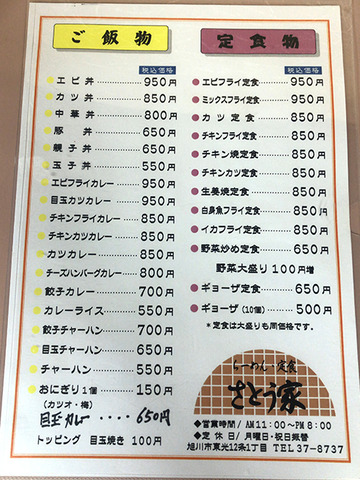 ご飯物
税込価格
エビ丼………950円
カツ丼………850円
中華丼………800円
豚丼………650円
親子丼………650円
玉子丼………550円
エビフライカレー……950円
目玉カツカレー……950円
チキンフライカレー…850円
チキンカツカレー……850円
カツカレー………850円
チーズハンバーグカレー…800円
餃子カレー………700円
カレーライス………550円
餃子チャーハン……700円
目玉チャーハン……650円
チャーハン………550円
おにぎり1個………150円
(カツオ・梅)
目玉カレー‥‥650円
トッピング 目玉焼き 100円
定食物
税込価格
エビフライ定食………950円
ミックスフライ定食……950円
カツ定食………850円
チキンフライ定食……850円
チキン焼定食………850円
チキンカツ定食………850円
生姜焼定食………850円
白身魚フライ定食……850円
イカフライ定食………850円
野菜炒め定食………650円
野菜大盛り100円増
ギョーザ定食………650円
ギョーザ(10個)……500円
*定食は大盛りも同価格です。
らーめん・定食
さとう家
◆営業時間/AM11:00〜PM8:00
◆定休日/月曜日・祝日振替
旭川市東光12条1丁目 TEL37-8737